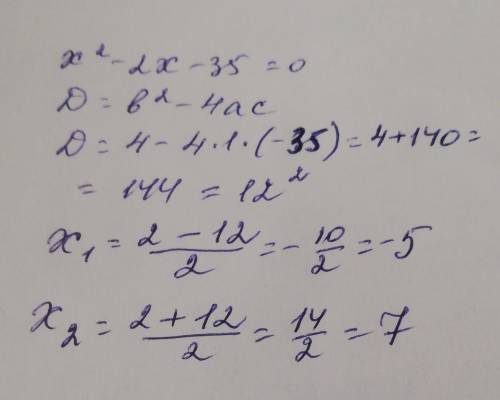 x² - 2x - 35 = 0
D = в² - 4ac
D = 4 - 4·1·(-35) = 4 + 140 =
= 144 = 12²
x₁ = (2 - 12)/2 = -10/2 = -5
x₂ = (2 + 12)/2 = 14/2 = 7